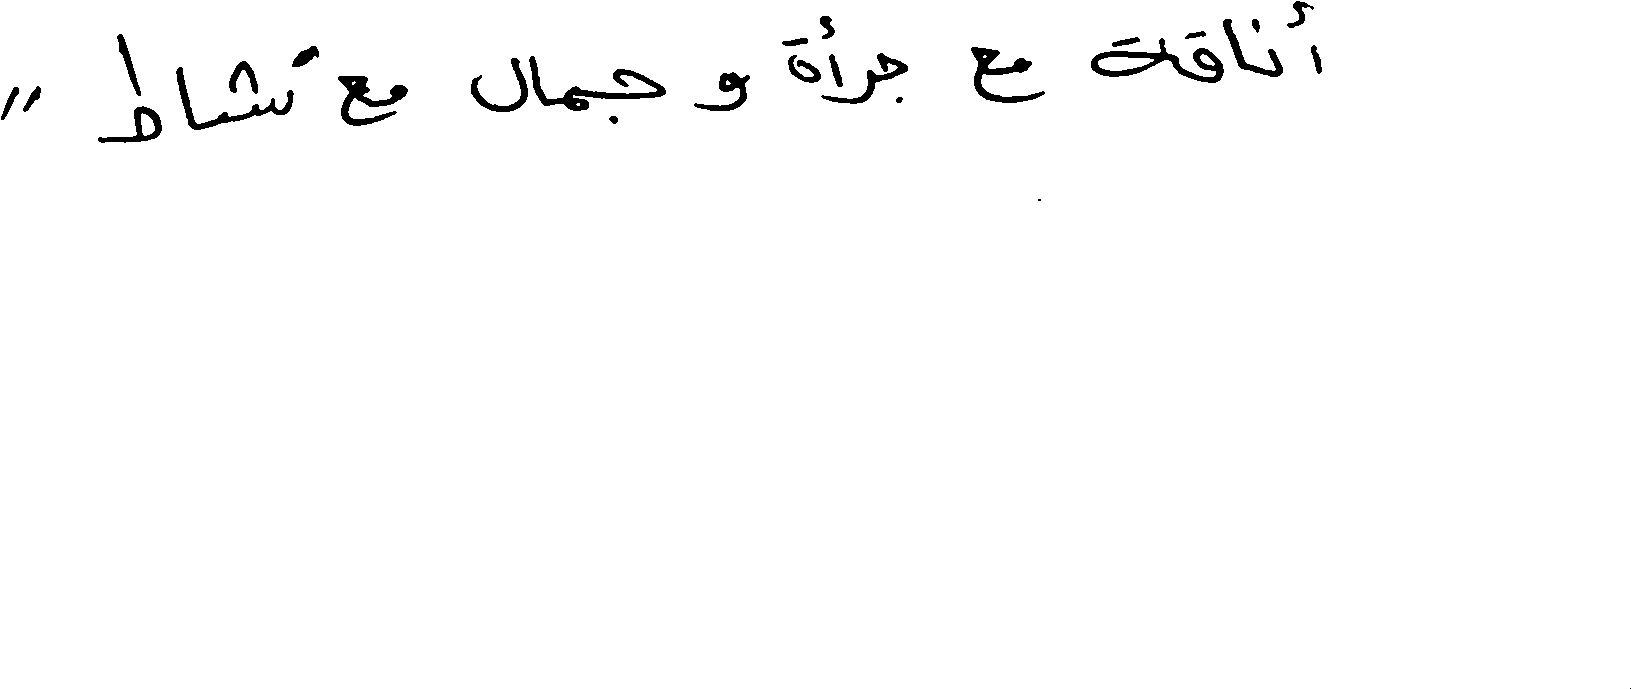 أناقة مع جرأة و جمال مع نشاط "